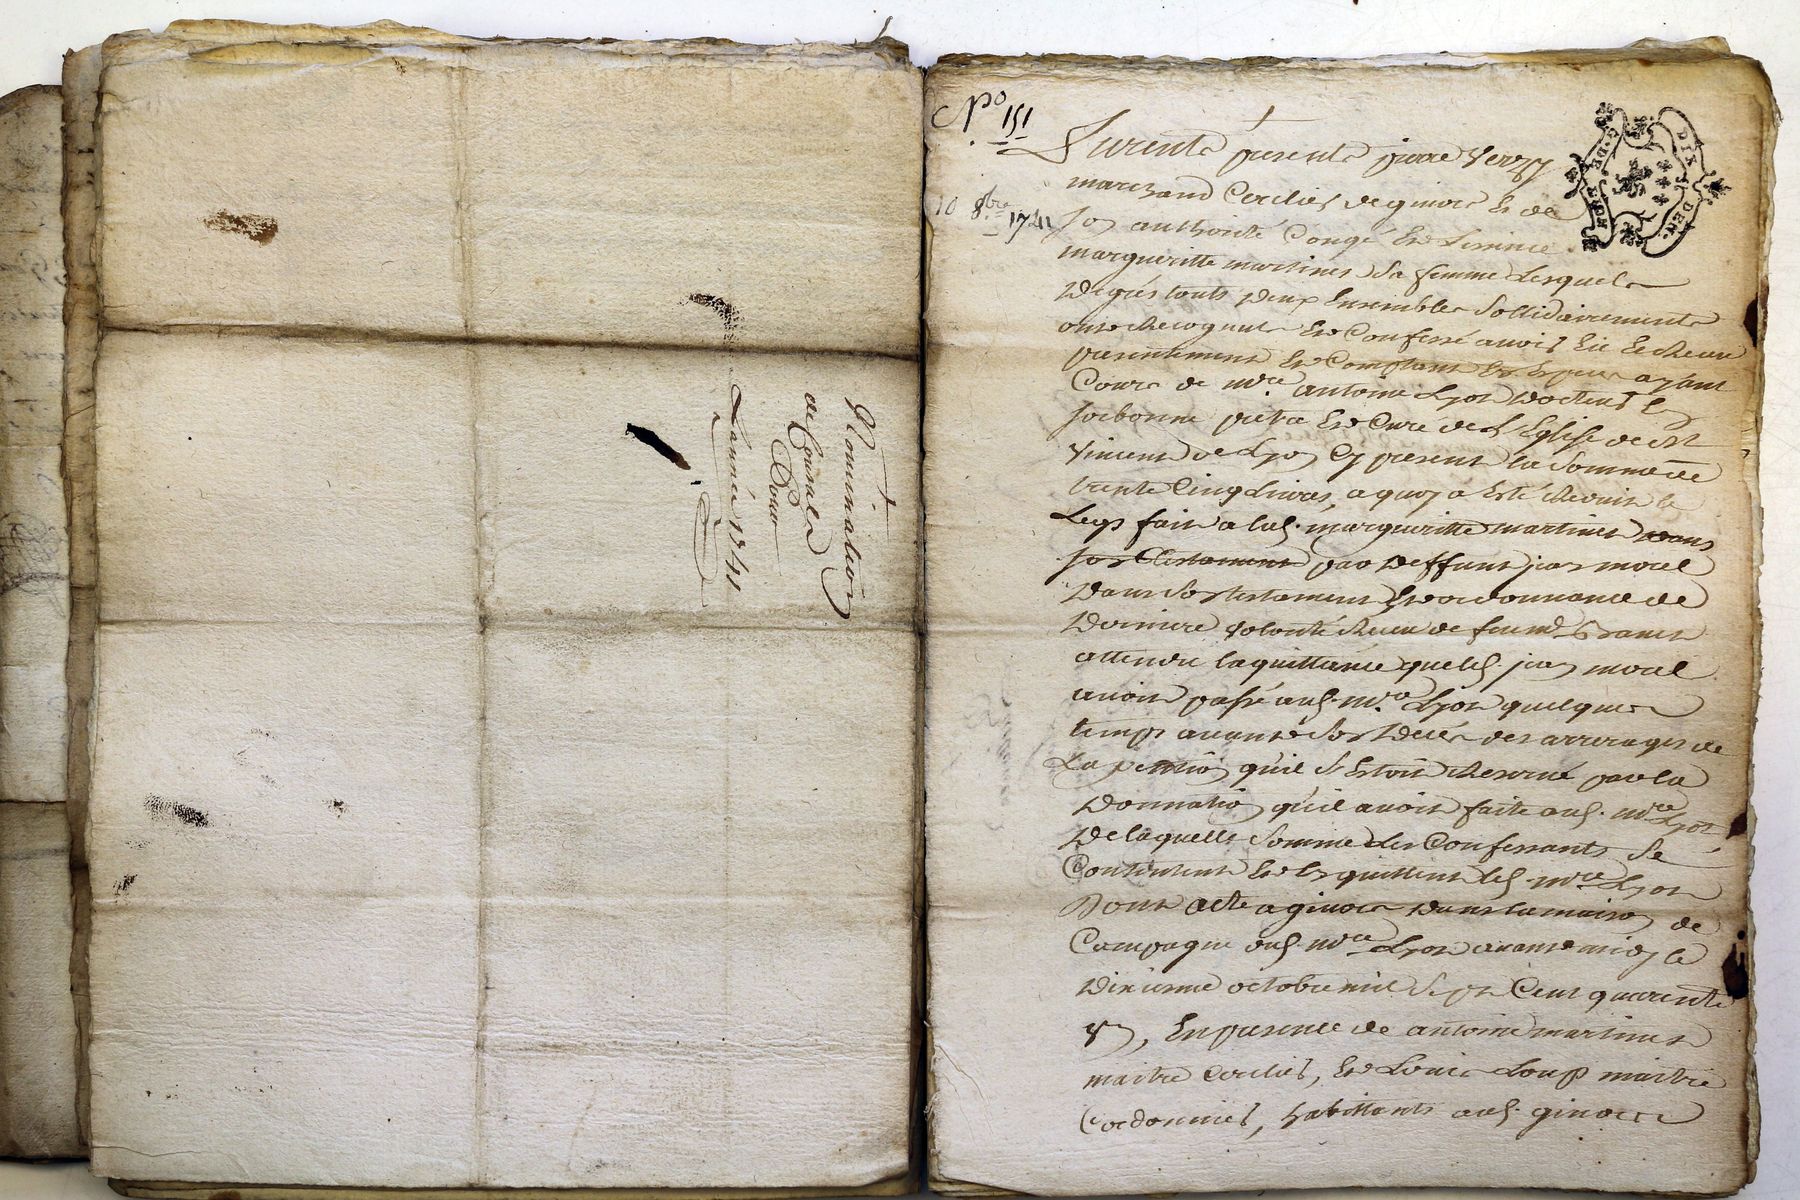 Nomination
de Consuls
Pour
L'année 1741
No 151
10 8bre 1741
G. DE LYON
DIX DEN.
Furents presents pierre Verzy
marchand Cerclier de givors Et de
son authorité Congé Et Licence
margueritte martinet sa femme Lesquels
De grés touts deux Ensembles Sollidairements
onts Recognut Et Confessé avoir Eu Et Receu
presentement Et Comptant En Especes ayant
Cours de mre antoine Lyot docteur En
sorbonne pretre Et Curé de L'Eglise de St
Vincent de Lyon Cy present la Somme de
trente Cinq Livres, a quoy a Esté Reduit le
Legs fait a lad. margueritte martinet dans
son testament par deffunt jean morel
Dans Son testament Et ordonnance de
Derniere volonté Receu de feu md
attendu la quittance que led. jean morel
avoit passé aud. mre Lyot quelques
temps avant Son Decés des arrerages de
La pention qu'il S'Estoit Reservé par la
Donnation qu'il avoit faite aud. mre Lyot
De laquelle Somme Les Confessants Se
Contentent Et En quittent led. mre Lyot
Dont acte a givors Dans la maison de
Campagne dud. mre Lyot avant midy le
Dixieme octobre mil Sept Cent quarente
Vn, En presence de antoine martinet
maitre Cerclier, Et Louis Loup maitre
Cordonnier, habittants aud. givors